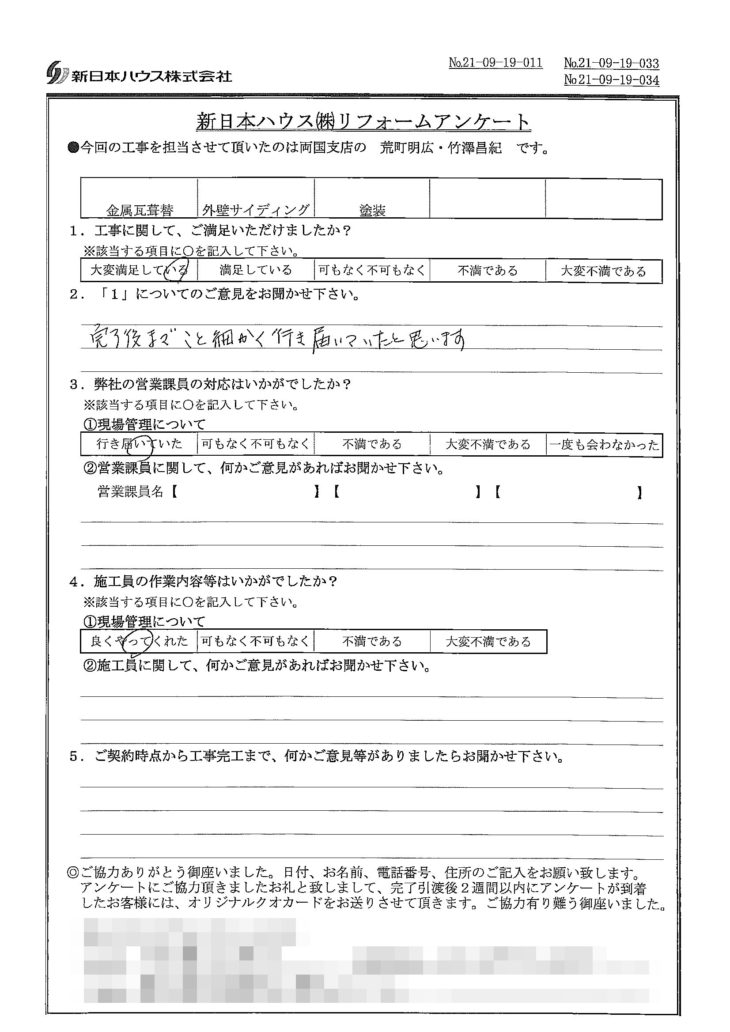 新日本ハウス株式会社
No.21-09-19-011 No.21-09-19-033
No.21-09-19-034
新日本ハウス㈱リフォームアンケート
●今回の工事を担当させて頂いたのは両国支店の 荒町明広・竹澤昌紀 です。
金属瓦葺替 外壁サイディング 塗装
1．工事に関して、ご満足いただけましたか？
※該当する項目に○を記入して下さい。
大変満足している 満足している 可もなく不可もなく 不満である 大変不満である
2．「1」についてのご意見をお聞かせ下さい。
完了後までこと細かく行き届いていたと思います
3．弊社の営業課員の対応はいかがでしたか？
※該当する項目に○を記入して下さい。
①現場管理について
行き届いていた 可もなく不可もなく 不満である 大変不満である 一度も会わなかった
②営業課員に関して、何かご意見があればお聞かせ下さい。
営業課員名【 】【 】【 】
4．施工員の作業内容等はいかがでしたか？
※該当する項目に○を記入して下さい。
①現場管理について
良くやってくれた 可もなく不可もなく 不満である 大変不満である
②施工員に関して、何かご意見があればお聞かせ下さい。
5．ご契約時点から工事完工まで、何かご意見等がありましたらお聞かせ下さい。
◎ご協力ありがとう御座いました。日付、お名前、電話番号、住所のご記入をお願い致します。
アンケートにご協力頂きましたお礼と致しまして、完了引渡後２週間以内にアンケートが到着
したお客様には、オリジナルクオカードをお送りさせて頂きます。ご協力有り難う御座いました。